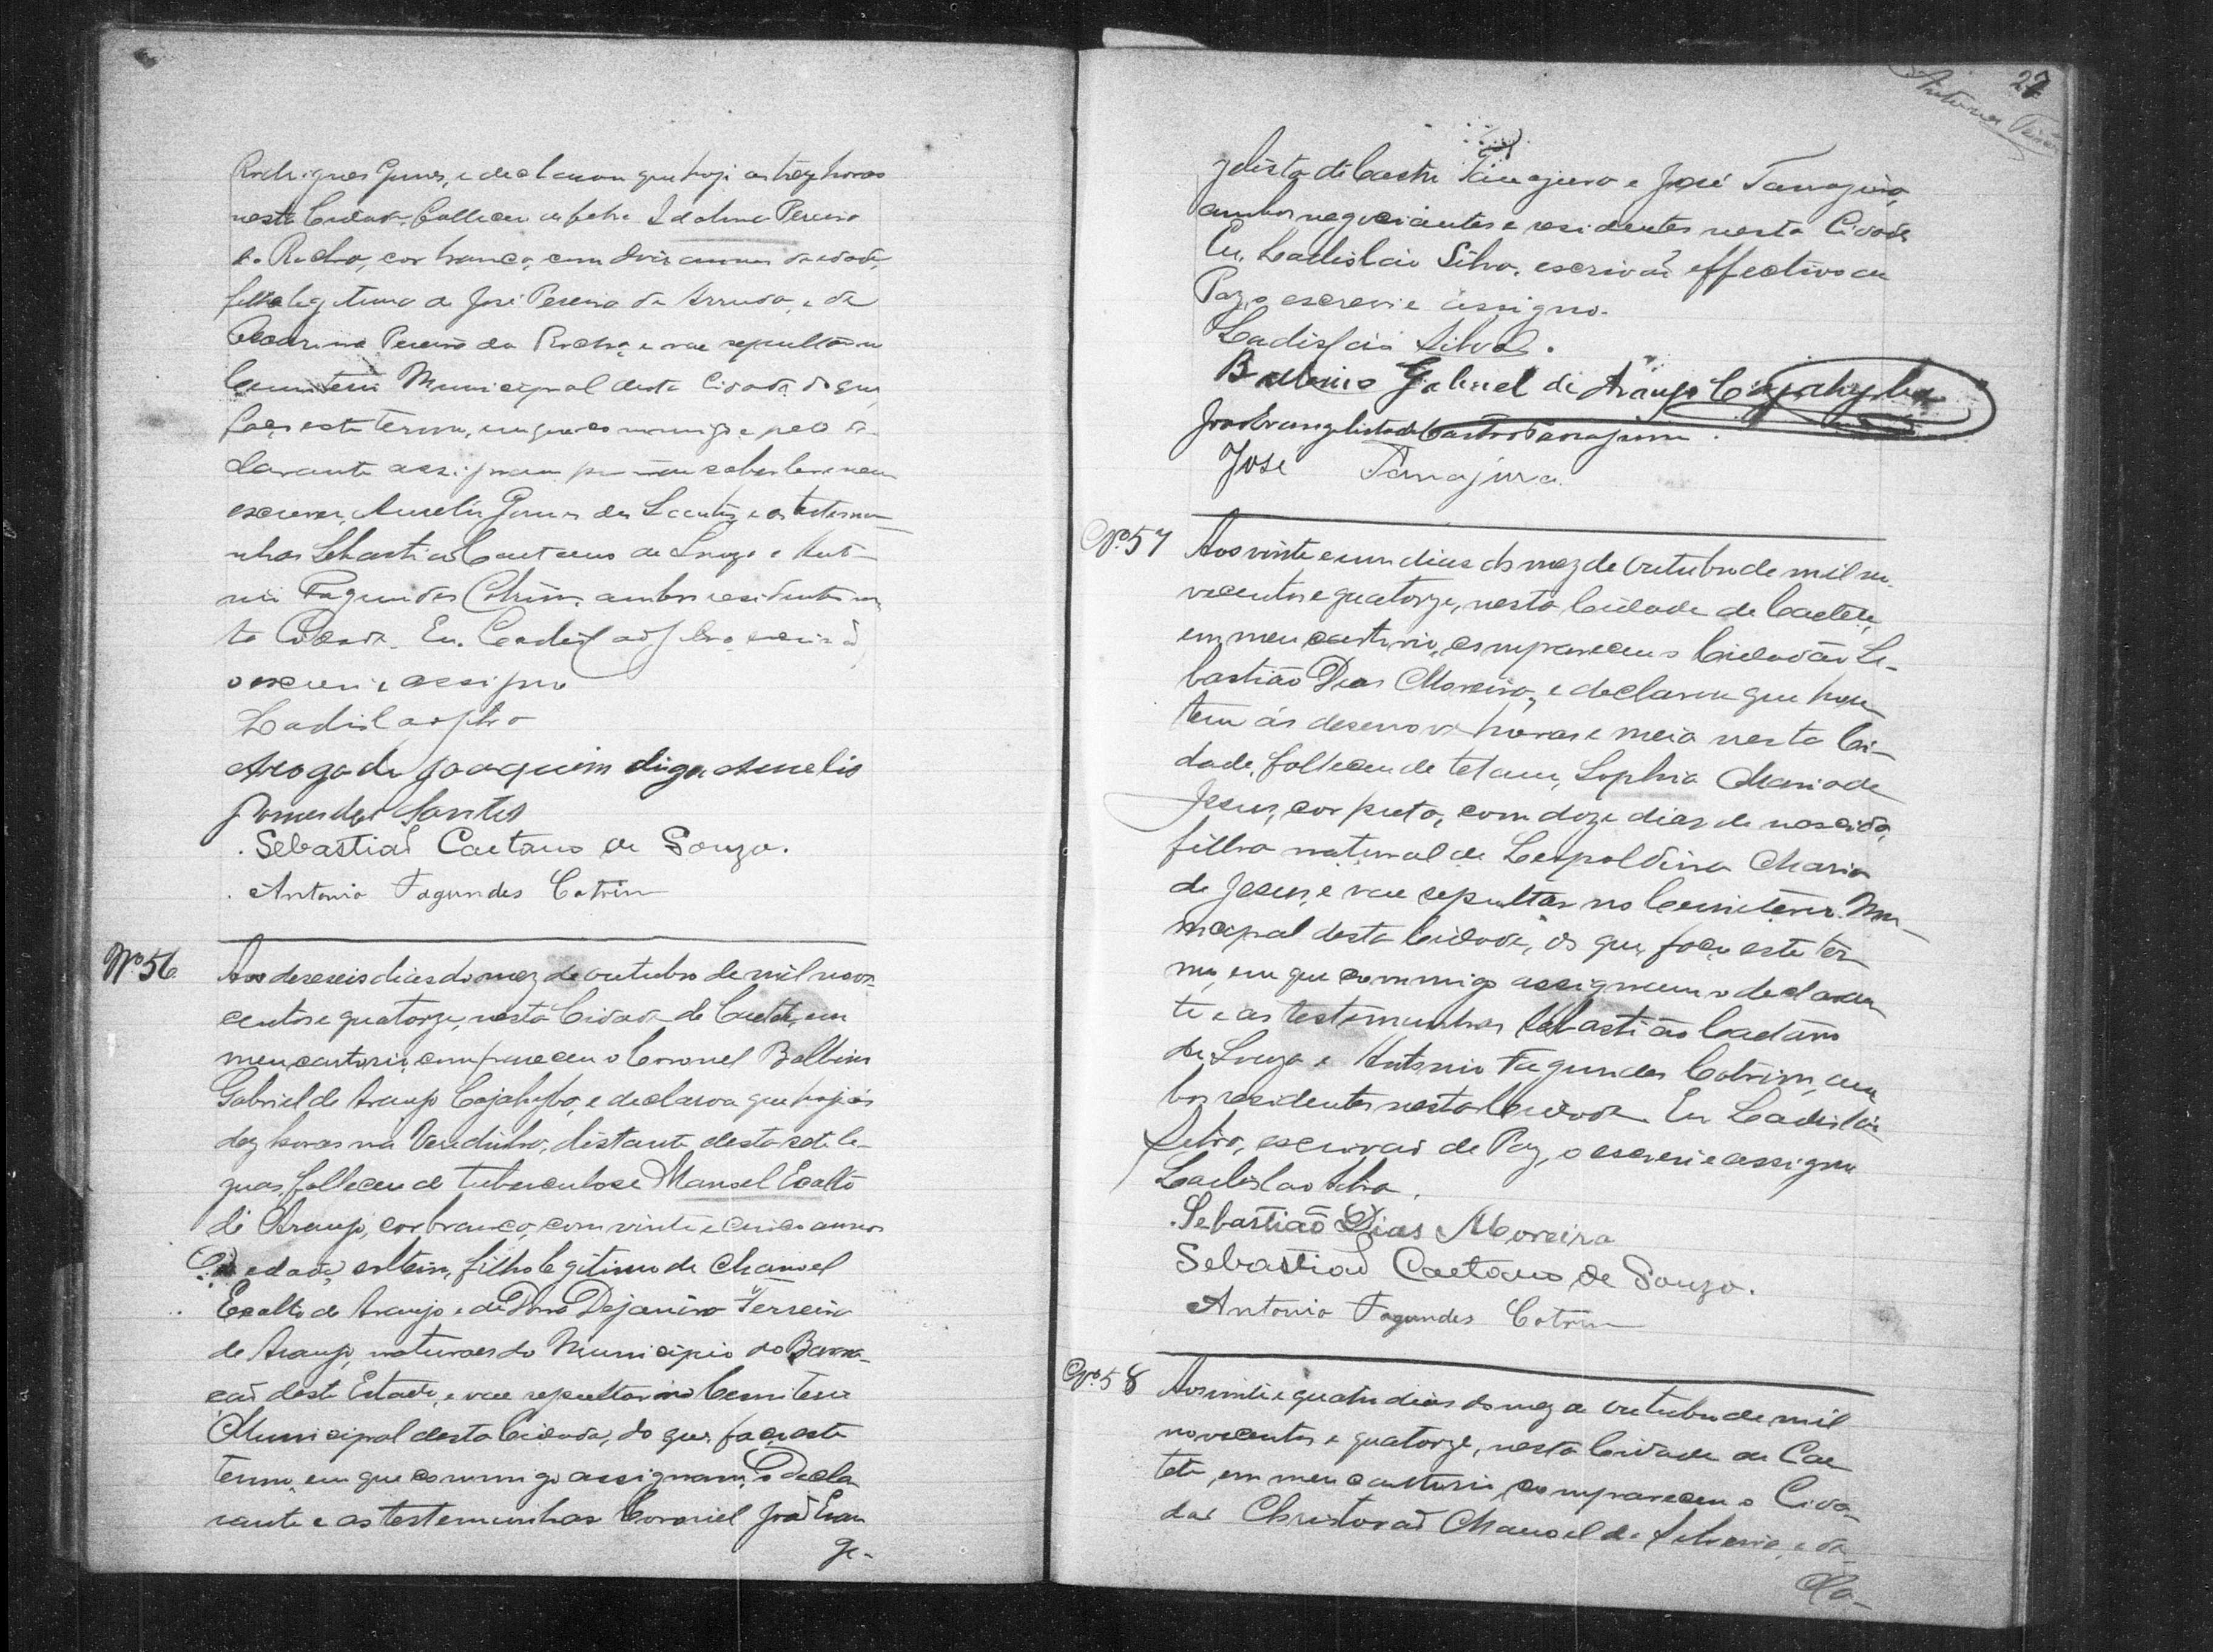 Rodrigues Gomes, e declarou que hoje as treze horas
nesta Cidade falleceu de febre Idalina Pereira
da Rocha, cor branca, com dois annos de edade,
filha legitima de José Pereira de Arruda, e de
Pereira da Rocha, e vae sepultar no
Cemiterio Municipal desta Cidade do que
faço este termo, em que commigo e pelo de-
clarante assignam por não saber ler nem
escrever, Aurelio Gomes dos Santos, e as testemu-
nhas Sebastião Caetano de Souza e Anto-
nio Fagundes Cotrim, ambos residentes nes-
ta Cidade. Eu, Ladislao Silva, escrivão
o escrevi e assigno
Ladislao Silva
Arogo de Joaquim digo Aurelio
Gomes dos Santos
Sebastião Caetano de Souza.
Antonio Fagundes Cotrim
Nº 56
Aos deseseis dias do mez de outubro de mil nove-
centos e quatorze, nesta Cidade de Caeteté, em
meu cartorio, compareceu o Coronel Balbino
Gabriel de Araujo Cajahyba, e declarou que hoje ás
dez horas na Veredinha, distante desta sete le-
guas, falleceu de tuberculose Manoel Exalto
de Araujo, cor branca, com vinte e cinco annos
de edade, solteiro, filho legitimo de Manoel
Exalto de Araujo e de Dona Dejanira Ferreira
de Araujo, naturaes do Municipio do Barra-
cão deste Estado, e vae sepultar no Cemiterio
Municipal desta Cidade, do que faço este
termo, em que commigo assignam, o decla
rante e as testemunhas Coronel João Evan
ge-
27
gelista de Castro Tanajura e José Tanajura,
ambos negociantes e residentes nesta Cidade
Eu, Ladislao Silva, escrivão effectivo de
Paz, o escrevi e assigno.
Ladislao Silva.
Balbino Gabriel de Araujo Cajahyba
João Evangelista de Castro Tanajura.
José Tanajura
Nº 57
Aos vinte e um dias do mez de outubro de mil no-
vecentos e quatorze, nesta Cidade de Caeteté,
em meu cartorio, compareceu o Cidadão Se-
bastião Dias Moreira, e declarou que hon
tem ás desenove horas e meia nesta Ci-
dade, falleceu de tetano, Sophia Maria de
Jesus, cor preta, com doze dias de nascida,
filha natural de Leopoldina Maria
de Jesus, e vae sepultar no Cemiterio Mu-
nicipal desta Cidade, do que faço este ter
mo, em que commigo assignam o declaran
te e as testemunhas Sebastião Caetano
de Souza e Antonio Fagundes Cotrim, am
bos residentes nesta Cidade. Eu Ladislao
Silva, escrivão de Paz, o escrevi e assigno
Ladislao Silva.
Sebastião Dias Moreira
Sebastião Caetano de Souza.
Antonio Fagundes Cotrim
Nº 58
Aos vinte e quatro dias do mez de outubro de mil
novecentos e quatorze, nesta Cidade de Cae
teté, em meu cartorio, compareceu o Cida-
dão Christovão Manoel de Silveira, e de-
cla-